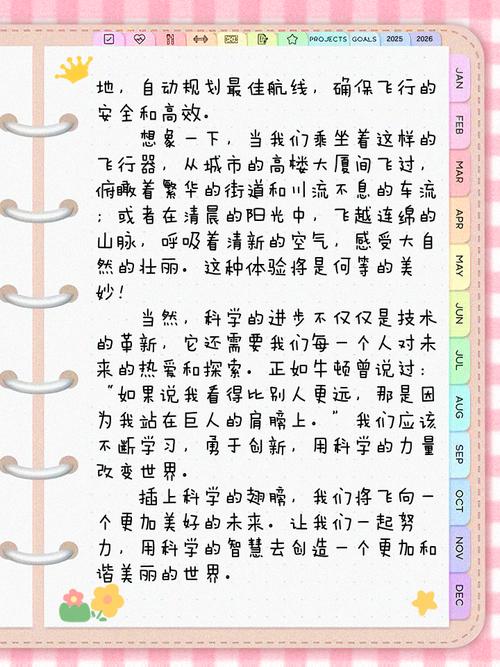 PROJECTS GOALS 2025 2026
地，自动规划最佳航线，确保飞行的
安全和高效。
想象一下，当我们乘坐着这样的
飞行器，从城市的高楼大厦间飞过，
俯瞰着繁华的街道和川流不息的车流
；或者在清晨的阳光中，飞越连绵的
山脉，呼吸着清新的空气，感受大自
然的壮丽。这种体验将是何等的美
妙！
当然，科学的进步不仅仅是技术
的革新，它还需要我们每一个人对未
来的热爱和探索。正如牛顿曾说过：
“如果说我看得比别人更远，那是因
为我站在巨人的肩膀上。”我们应该
不断学习，勇于创新，用科学的力量
改变世界。
插上科学的翅膀，我们将飞向一
个更加美好的未来。让我们一起努
力，用科学的智慧去创造一个更加和
谐美丽的世界。
JAN
FEB
MAR
APR
MAY
JUN
JUL
AUG
SEP
OCT
NOV
DEC